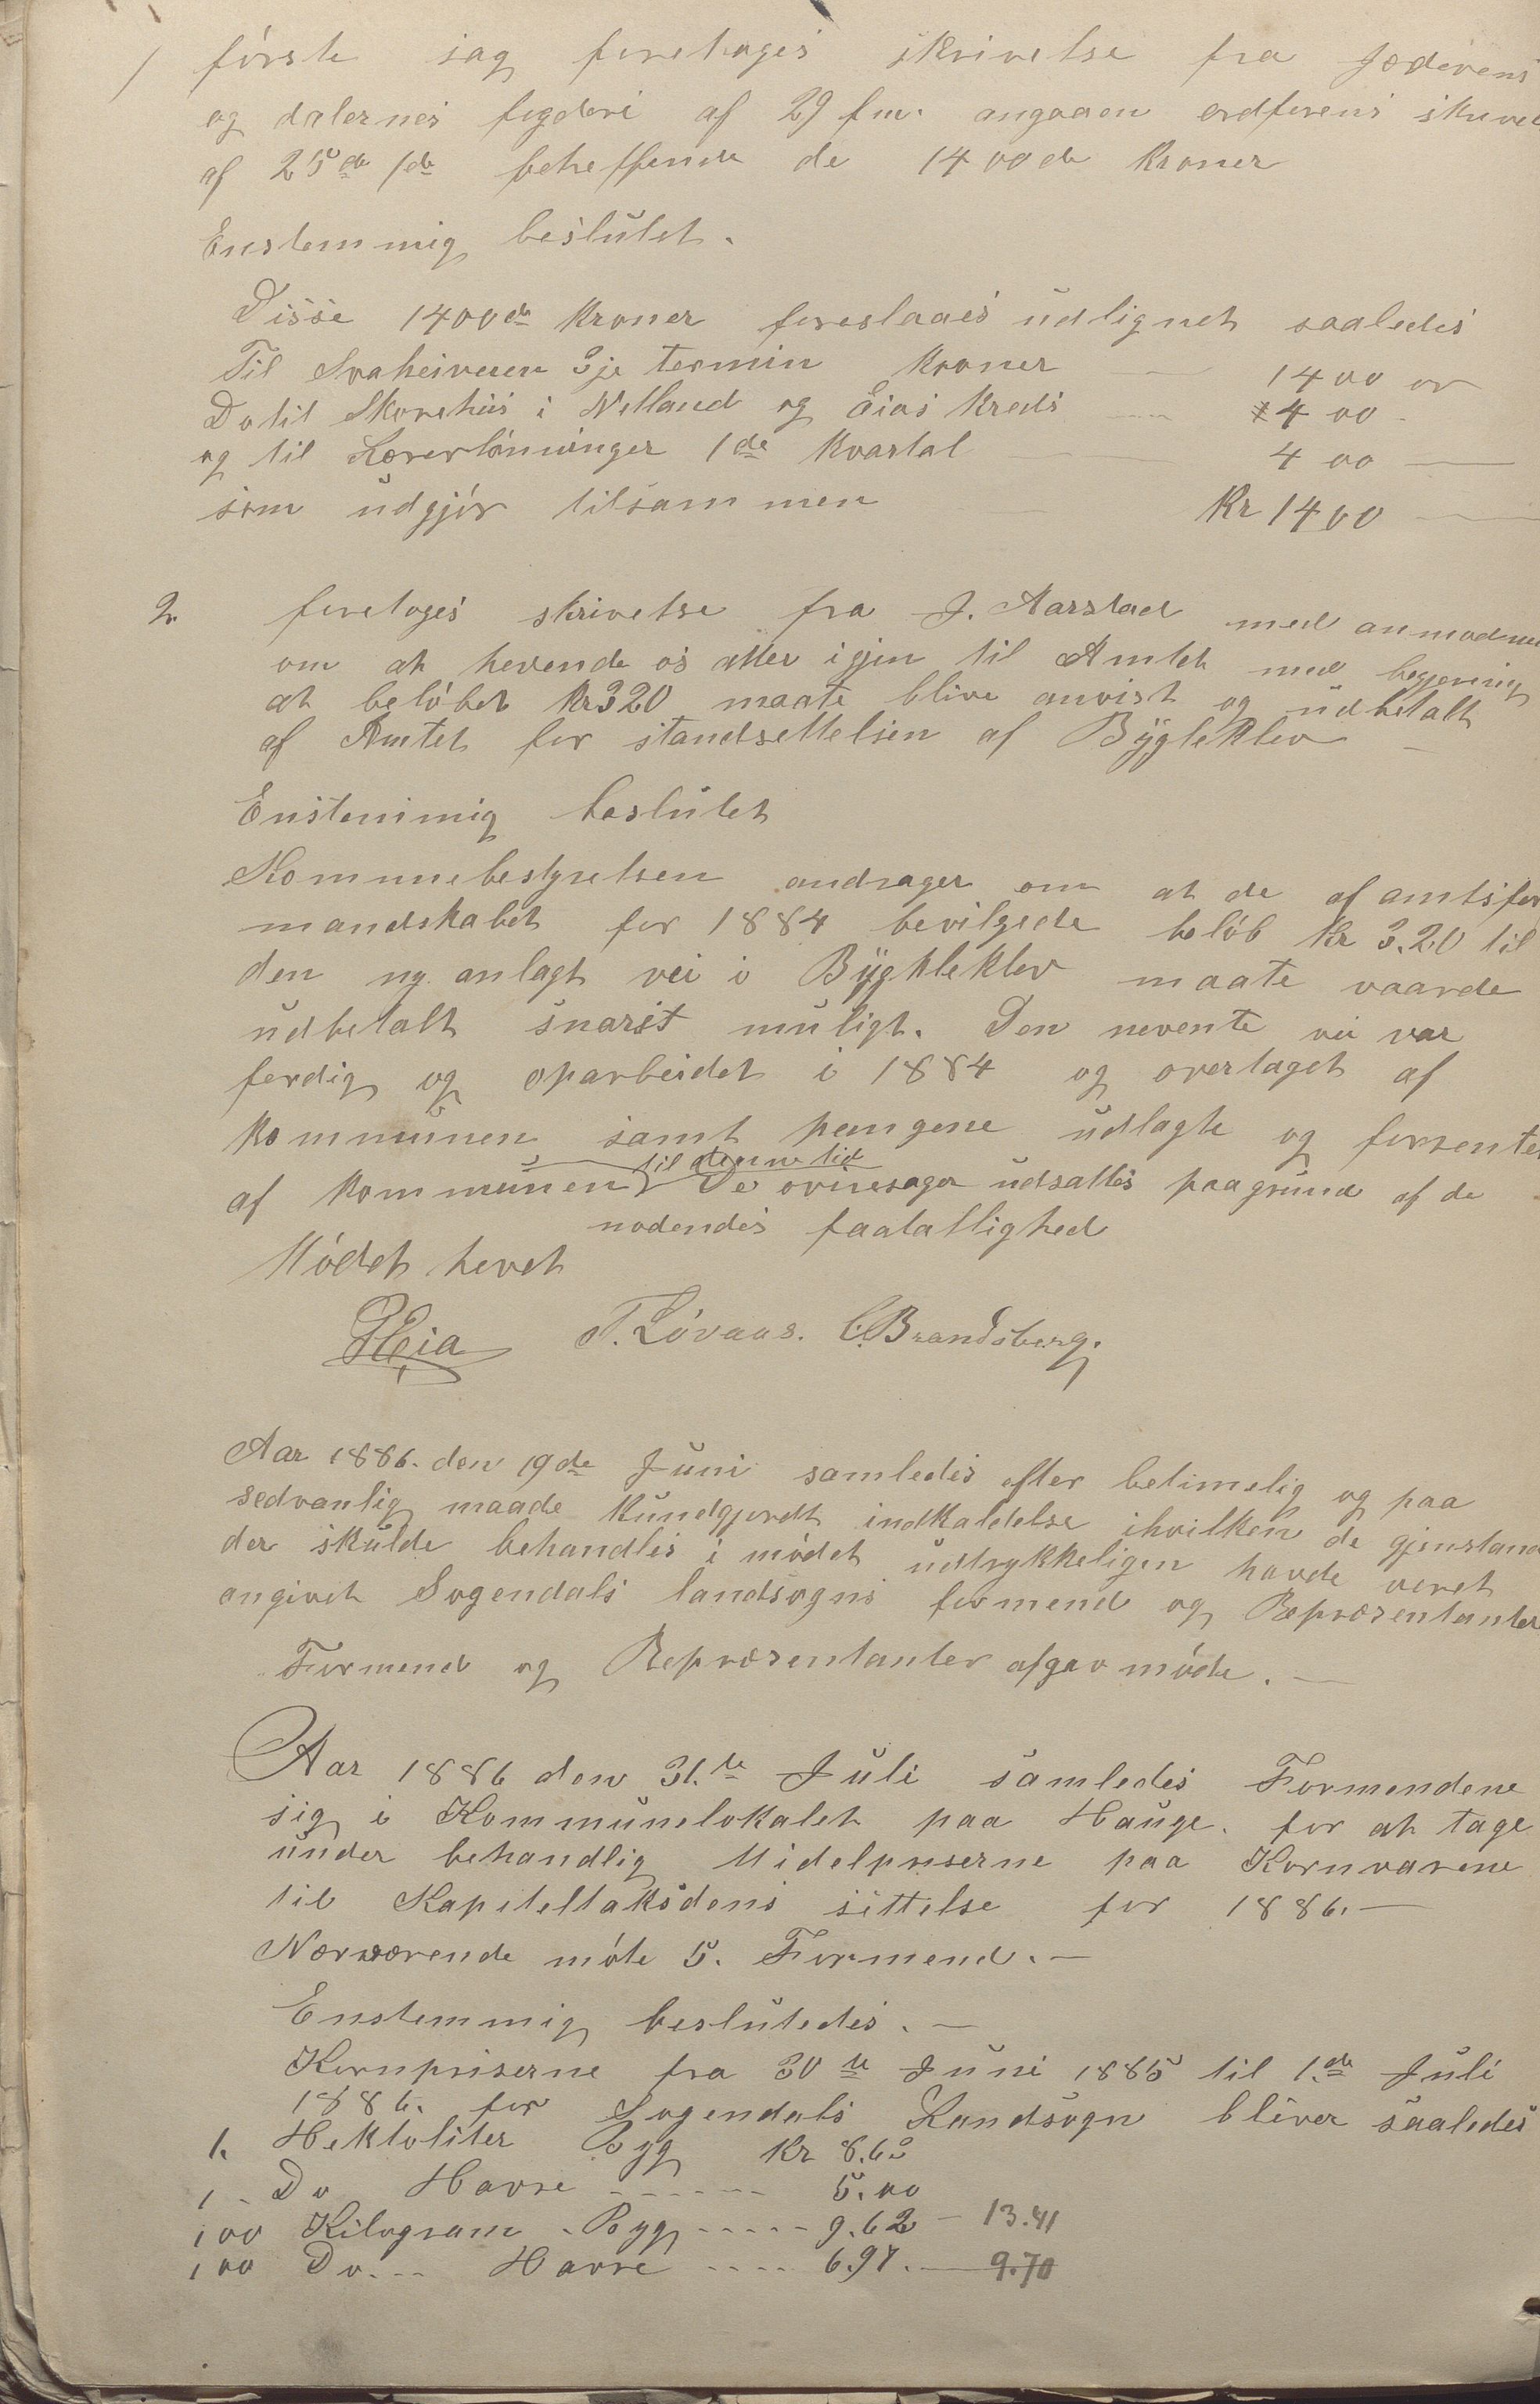 1 første sag foretoges skrivelse fra Jæderens
og dalernes fogderi af 29 fm. angaaen ordførens skrivel
af 25de 1de betreffende de 1400de Kroner
Enstemmig beslutet.
Disse 1400de Kroner foreslaaes udlignet saaledes
Til Svaheiveien 3je termin Kroner — 1400 or
Do til Skorehus i Netland og Eias Kreds — 400 -
og til Lærerlønninger 1de Kvartal — 400 —
som udgjør tilsammen — Kr 1400 —
2. foretoges skrivelse fra J. Aarstad med anmodnin
om at hevende os atter igjen til Amtet med begjering
at beløbet Kr 320 maate blive anvist og udbetalt
af Amtet for istandsettelsen af Bygleklev —
Enstemmig beslutet
Kommunebestyrelsen andrager om at de af amtsfor
mandskabet for 1884 bevilgede beløb Kr 3.20 til
den ny anlagt vei i Bygkleklev maate vaarde
udbetalt snarest muligt. Den nevente vei var
ferdig og oparbeidet i 1884 og overtaget af
kommunen samt pengene udlagte og forrentet
til denne tid
af kommunen De øvrige sager udsattes paa grund af de
modendes faatallighed
Mødet hevet
PEia T. Løvaas. C. Brandsberg.
Aar 1886. den 19de Juni samledes efter betimelig og paa
sedvanlig maade kundgjordt indkaldelse ihvilken de gjenstand
der skulde behandles i mødet udtrykkeligen havde veret
angivet Sogendals landsogns formend og Repræsentanter
Formend og Repræsentanter afgav møde. —
Aar 1886 den 31.te Juli samledes Formendene
sig i Kommunelokalet paa Hauge. for at tage
under behandlig Midelpriserne paa Kornvarene
til Kapiteltakstens settelse for 1886. —
Nærværende møte 5. Formend. —
Enstemmig beslutedes. —
Kornpriserne fra 30te Juni 1885 til 1.de Juli
1886. for Sogendals Landsogn bliver saaledes
1. Hektoliter Byg Kr 8.62
1 - Do Havre ------ 5.00
100 Kilogram - Byg ----- 9.62 — 13.41
100 Do. -- Havre ---- 6.97. — 9.70